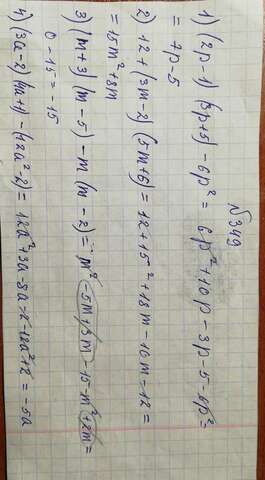 №349
1) (2p-1) (3p+5) - 6p² = 6p² + 10p - 3p - 5 - 6p² =
= 7p - 5
2) 12 + (3m-2) (5m+6) = 12 + 15² + 18m - 10m - 12 =
= 15m² + 8m
3) (m+3 (m-5) - m (m-2) = m² - 5m + 3m - 15 - m² + 2m =
0 - 15 = -15
4) (3a-2) (4a+1) - (12a² - 2) = 12a² + 3a - 8a - 2 - 12a² + 2 = -5a